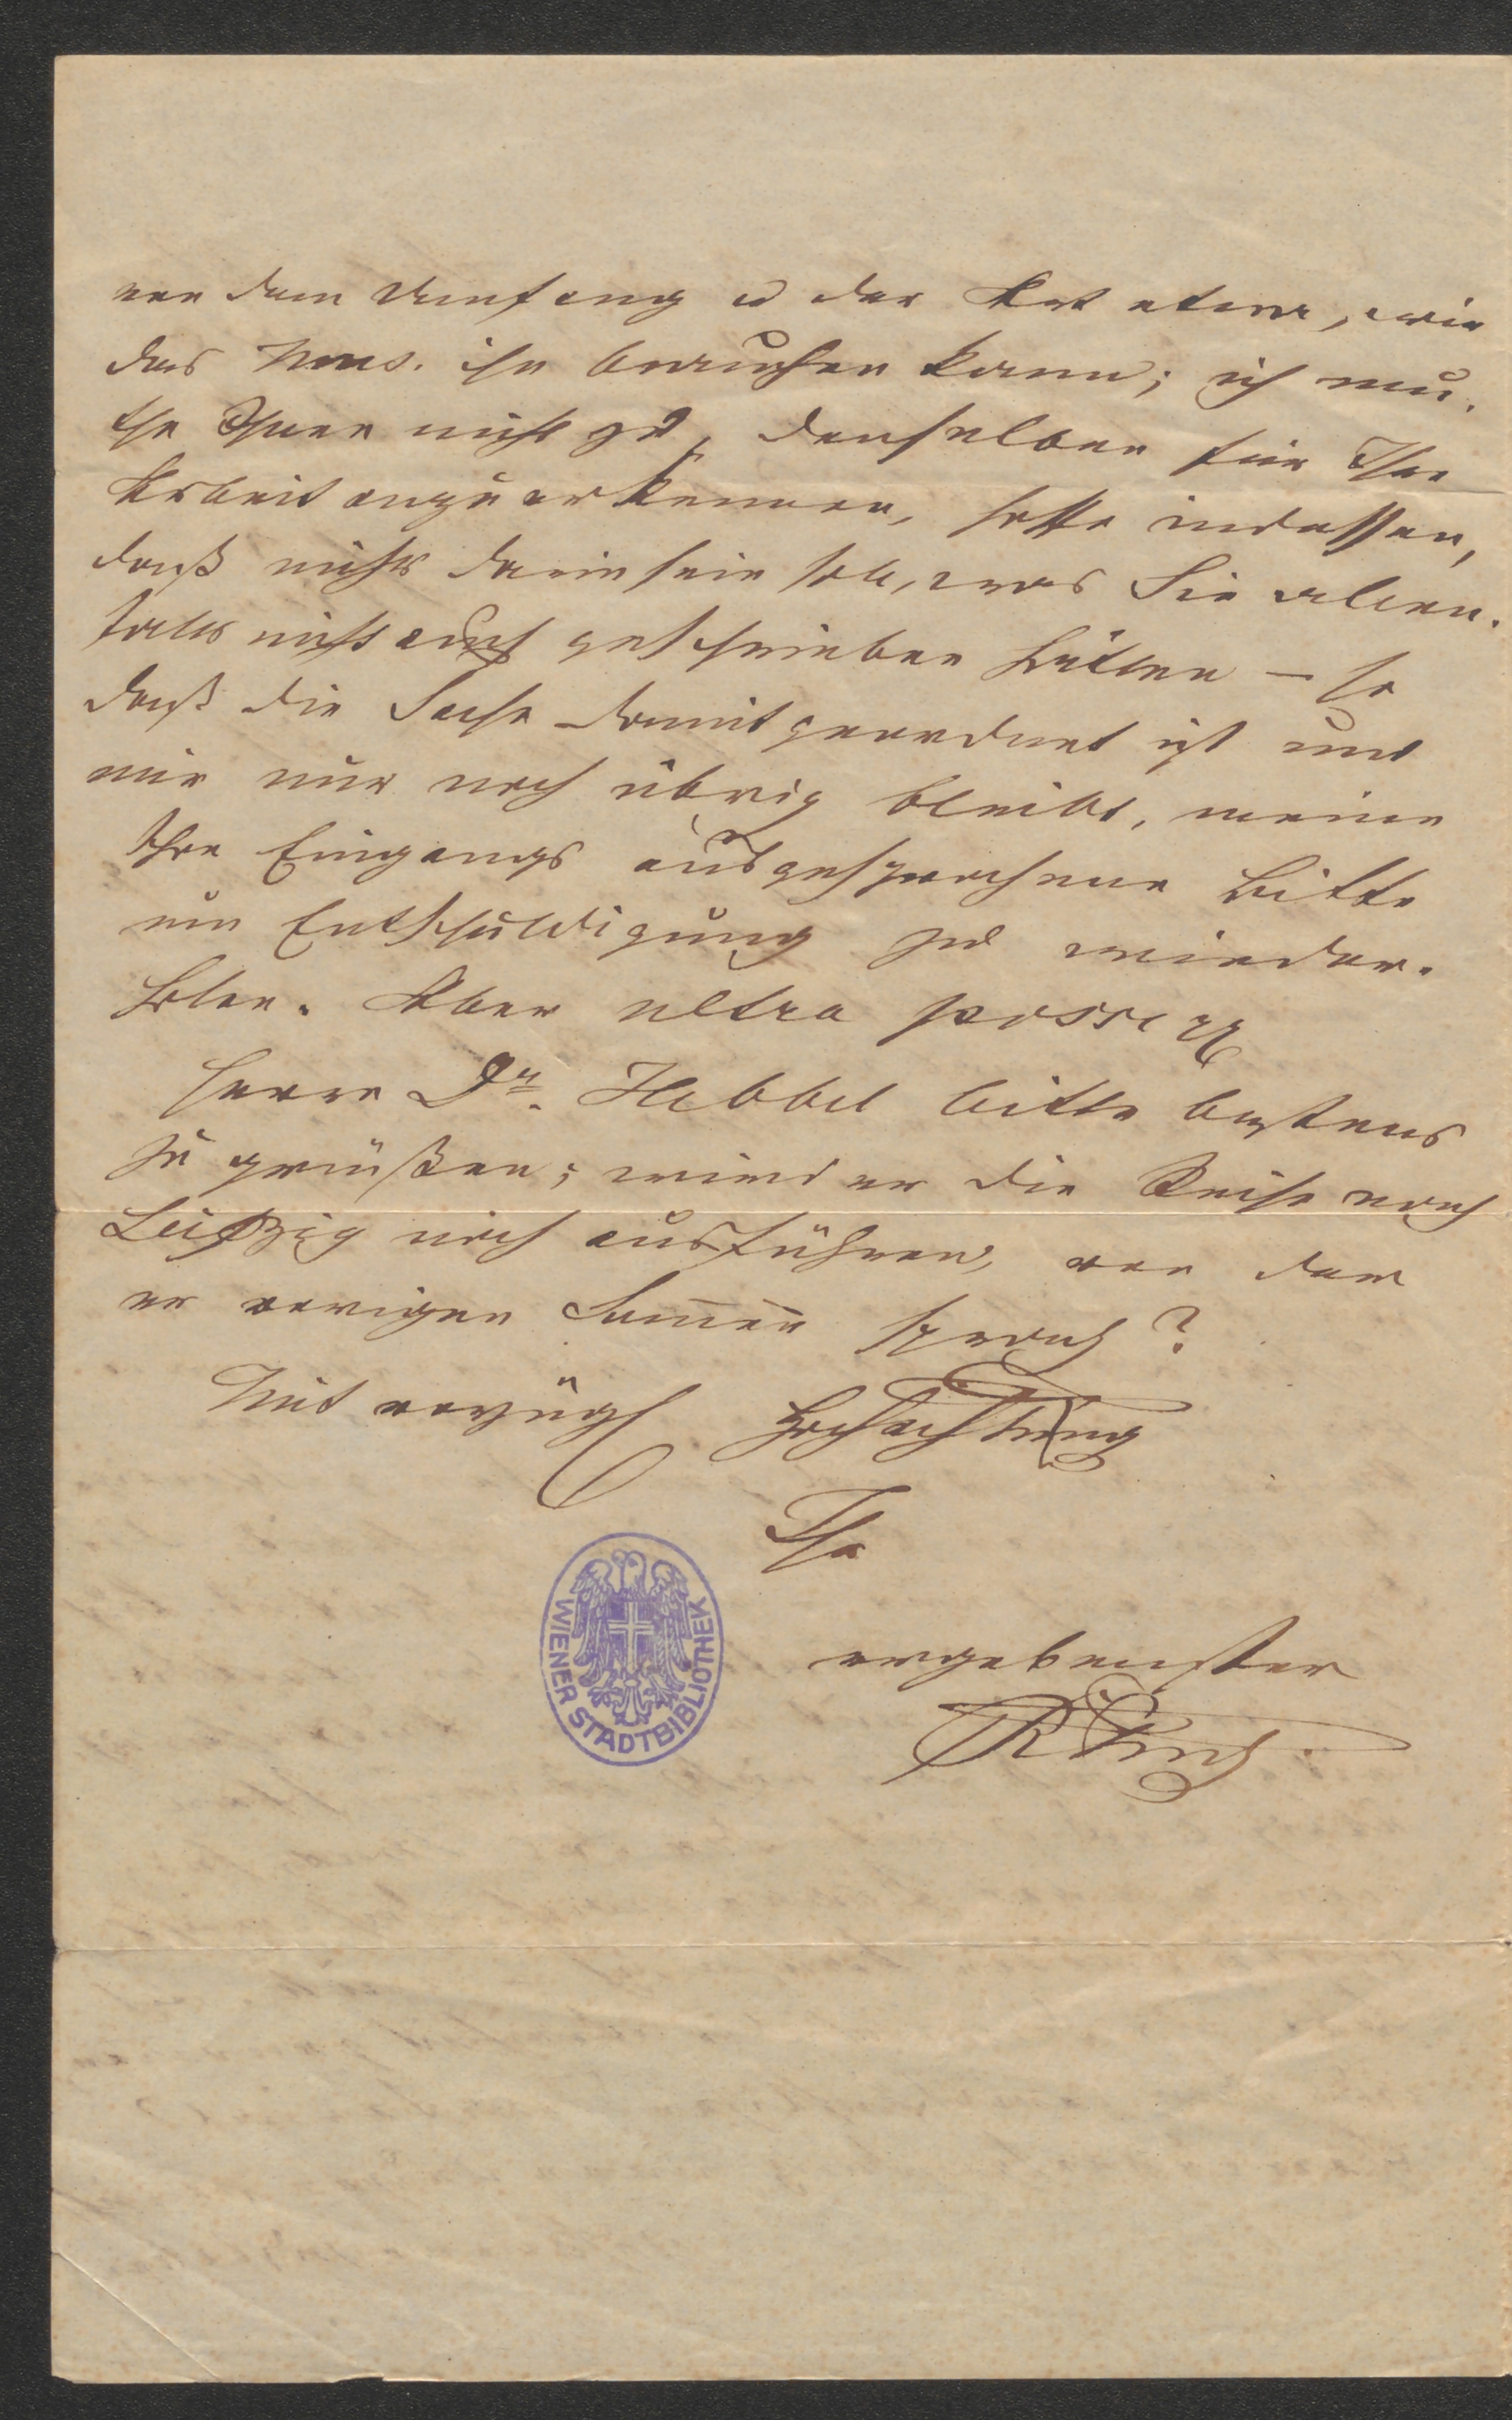 von dem Umfang u der Art etwa, wie
das Mus. ihn brauchen kann; ich mu-
the Ihnen nicht zu, denselben für Ihre
Arbeit anzuerkennen, hoffe indessen,
daß nichts darin sein soll, was Sie allen-
falls nicht auch geschrieben hätten – so
daß die Sache damit geordnet ist und
mir nur noch übrig bleibt, meine
Ihre Eingangs ausgesprochene Bitte
um Entschuldigung zu wieder-
holen. Aber ultra posse
Herrn Dr. Hebbel bitte bestens
zu grüßen; wird er die Reise nach
Leipzig noch ausführen, von der
er vorigen Sommer sprach?
Mit vorzügl Hochachtung
Ihr
ergebenster
WIENER STADTBIBLIOTHEK